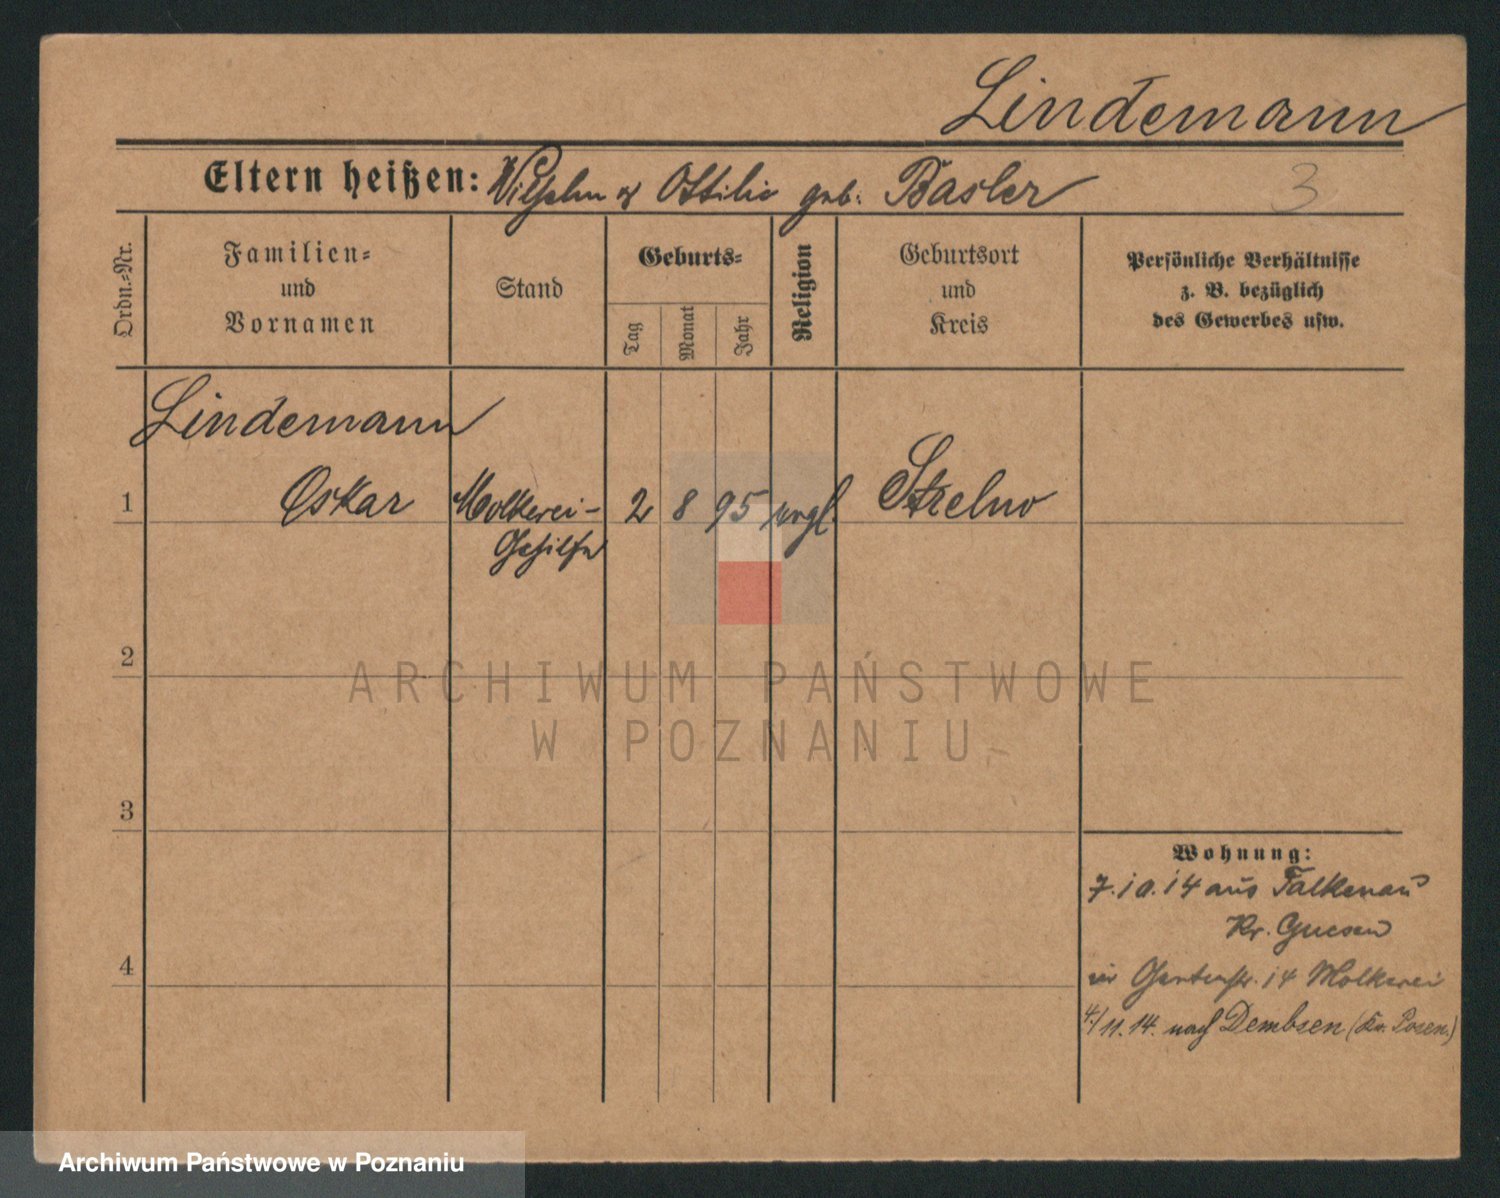 Lindemann
Eltern heißen: Wilhelm & Ottilie geb. Basler
3
Ordn.-Nr.
Familien-
und
Vornamen
Stand
Geburts-
Tag
Monat
Jahr
Religion
Geburtsort
und
Kreis
Persönliche Verhältnisse
z. B. bezüglich
des Gewerbes usw.
Lindemann
1 Oskar Molkerei- 2 8 95 evgl. Strelno
Gehilfe
2
ARCHIWUM PAŃSTWOWE
W POZNANIU
3
Wohnung:
7.10.14 aus Falkenau
Kr. Gnesen
in Gartenstr. 14 Molkerei
4
4/11.14. nach Dembsen (Kr. Posen.)
Archiwum Państwowe w Poznaniu